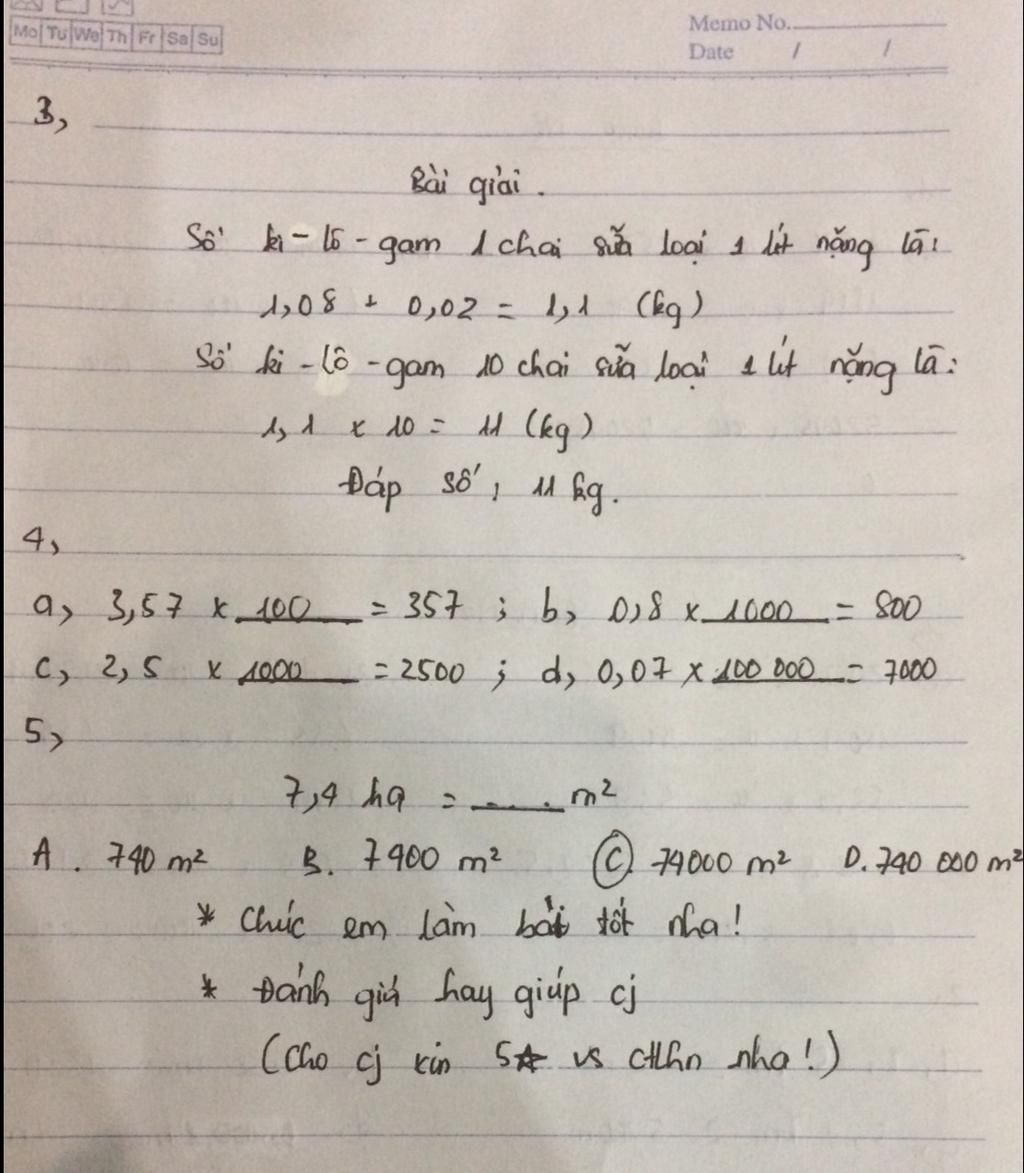 Mo Tu We Th Fr Sa Su
Memo No.
Date / /
3,
Bài giải.
Số ki-lô-gam 1 chai sữa loại 1 lít nặng là:
1,08 + 0,02 = 1,1 (kg)
Số ki-lô-gam 10 chai sữa loại 1 lít nặng là:
1,1 x 10 = 11 (kg)
Đáp số: 11 kg.
4,
a, 3,57 x 100 = 357 ; b, 0,8 x 1000 = 800
c, 2,5 x 1000 = 2500 ; d, 0,07 x 100 000 = 7000
5,
7,4 ha = ..... m²
A. 740 m² B. 7400 m² C. 74000 m² D. 740 000 m²
* Chúc em làm bài tốt nha!
* Đánh giá hay giúp cj
(Cho cj xin 5☆ vs ctlhn nha!)